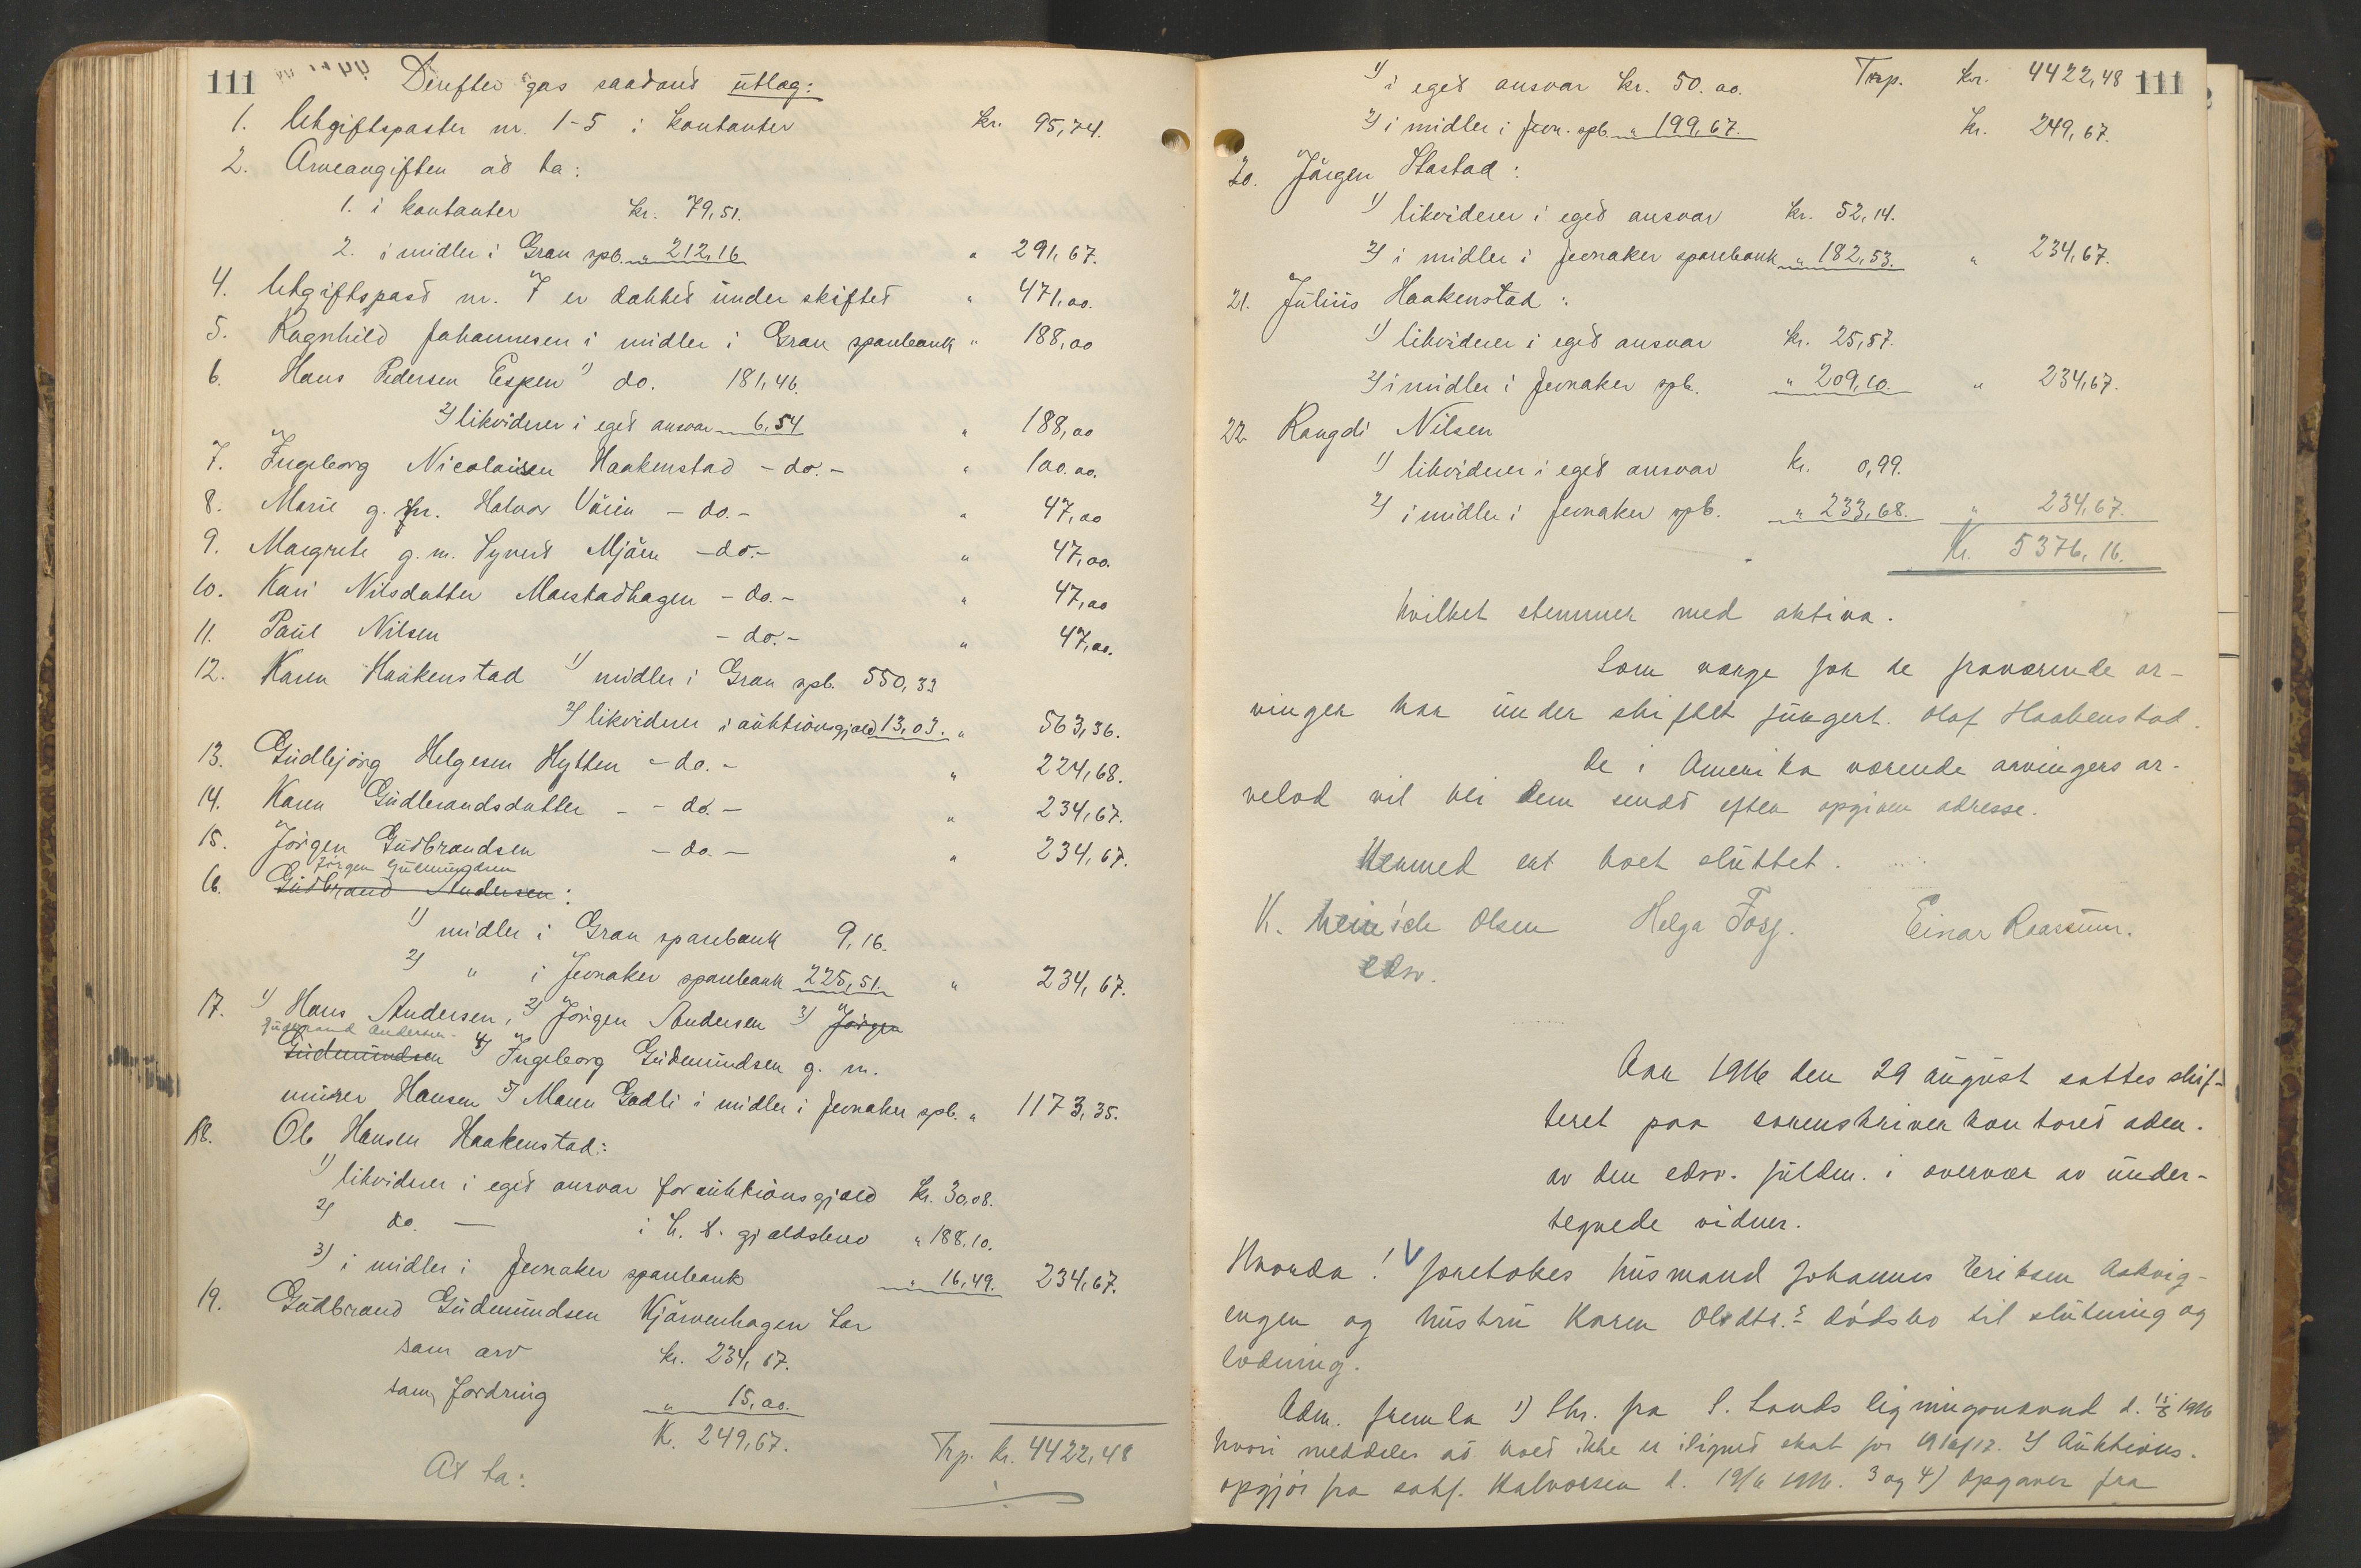 111
Derefter gas saadant utlæg:
1. Utgiftsposter nr. 1-5 i kontanter kr. 95,74.
2. Arveavgiften at ta:
1. i kontanter kr. 79,51.
2. i midler i Gran spb. " 212,16 " 291,67.
4. Utgiftspost nr. 7 er dækket under skiftet " 471,00.
5. Ragnhild Johannesen i midler i Gran sparebank " 188,00
6. Hans Pedersen Espen 1) do. 181,46.
2) likviderer i eget ansvar 6,54 " 188,00
7. Ingeborg Nicolaisen Haakenstad - do. - " 100.00.
8. Marie g. Halvor - do. - " 47,00
9. Margrete g. m. Syvert Mjörn - do. - " 47,00.
10. Kari Nilsdatter Marstadhagen - do. - " 47,00
11. Paul Nilsen - do. - " 47,00.
12. Karen Haakenstad 1) midler i Gran spb. 550,33
2) likviderer i auktionsgjæld 13,03. " 563,36.
13. Gudbjörg Helgesen Hytten - do. - " 224,68.
14. Karen Gudbrandsdatter - - do. - " 234,67.
15. Jörgen Gudbrandsen - do. - " 234,67.
Jörgen Gudmundsen
16. Gudbrand Andersen:
1) midler i Gran sparebank 9,16.
2) " i Jevnaker sparebank 225,51. " 234,67.
17. 1) Hans Andersen, 2) Jörgen Andersen 3) Jörgen
Gudbrand Andersen
Gudmundsen 4) Ingeborg Gudmundsen g. m.
murer Hansen 5) Maren Godli i midler i Jevnaker spb. " 1173,35.
18. Ole Hansen Haakenstad:
1) likviderer i eget ansvar for auktionsgjæld kr. 30,08.
2) do. — i h. t. gjældsbrev " 188,10.
3) i midler i Jevnaker sparebank " 16,49. 234,67.
19. Gudbrand Gudmundsen Kjörvenhagen har
som arv kr. 234,67.
som fordring " 15,00.
K. 249,67. Trp. kr. 4422,48
At ta:
1) i eget ansvar kr. 50.00. Trsp. kr. 4422,48 111
2) i midler i Jevn. spb. " 199,67. kr. 249,67.
20. Jörgen Stastad:
1) likviderer i eget ansvar kr. 52,14.
2) i midler i Jevnaker sparebank " 182,53. " 234,67.
21. Julius Haakenstad:
1) likviderer i eget ansvar kr. 25,57.
2) i midler i Jevnaker spb. " 209,10. " 234,67.
22. Rangdi Nilsen
1) likviderer i eget ansvar kr. 0,99.
2) i midler i Jevnaker spb. " 233,68. " 234,67.
Kr. 5376,16.
hvilket stemmer med aktiva.
Som verge for de fraværende ar-
vinger har under skiftet fungert Olaf Haakenstad.
De i Amerika værende arvingers ar-
velod vil bli dem sendt efter opgiven adresse.
Hermed ert boet sluttet.
K. Olsen Helga Foss. Einar Raassum.
edsv.
Aar 1916 den 29 august sattes skif-
teret paa sorenskriverkontoret adm.
av den edsv. fuldm. i overvær av under-
tegnede vidner.
Hvorda! V foretokes husmand Johannes Eriksen Askvig-
engen og hustru Karen Olsdtr.s dödsbo til slutning og
lodning.
Adm. fremla 1) Skr. fra S. Lands ligningsnævnd d. 15/8 1916
hvori meddeles at boet ikke er ilignet skat for 1916/17. 2) Auktions-
opgjör fra sakf. Halvorsen d. 19/6 1916. 3 og 4) Opgaver fra